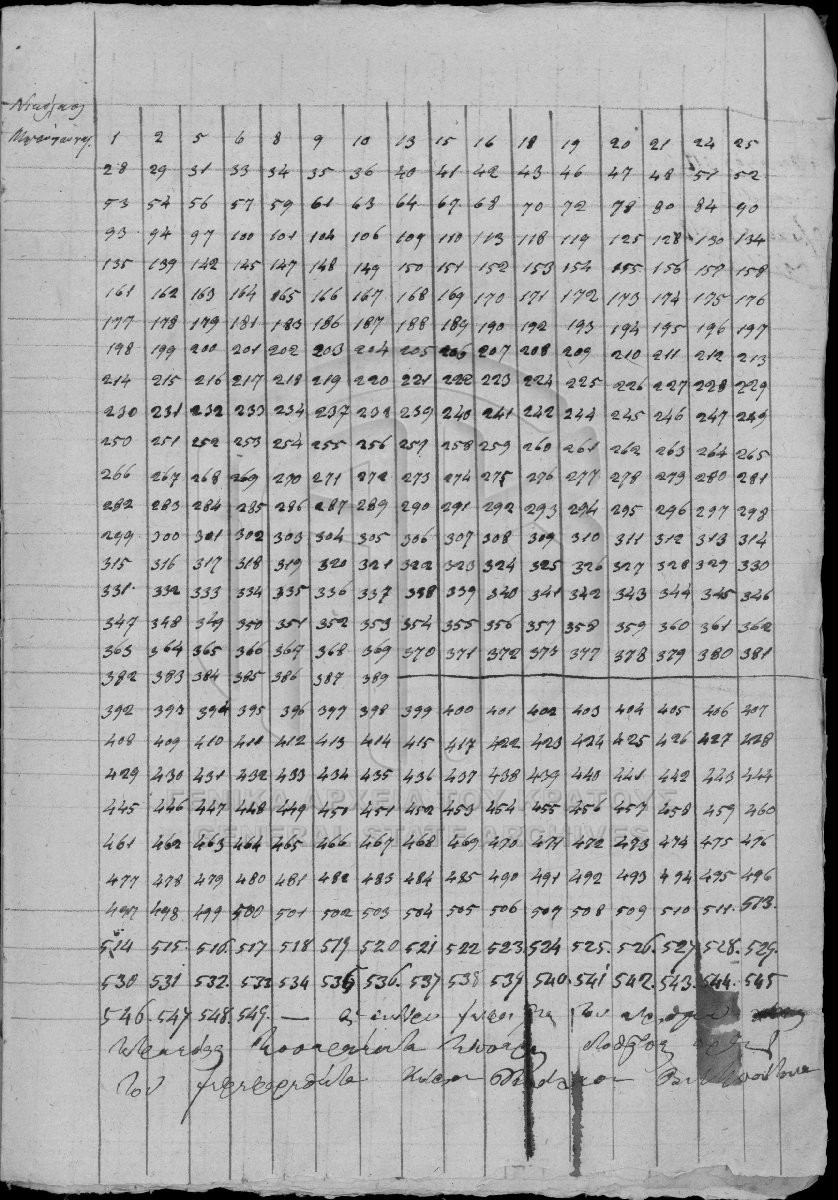 Νικόλαος
1 2 5 6 8 9 10 13 15 16 18 19 20 21 24 25
28 29 31 33 34 35 36 40 41 42 43 46 47 48 51 52
53 54 56 57 59 61 63 64 67 68 70 72 78 80 84 90
93 94 97 100 101 104 106 109 110 113 118 119 125 128 130 134
135 139 142 145 147 148 149 150 151 152 153 154 155 156 157 158
161 162 163 164 165 166 167 168 169 170 171 172 173 174 175 176
177 178 179 181 183 186 187 188 189 190 192 193 194 195 196 197
198 199 200 201 202 203 204 205 206 207 208 209 210 211 212 213
214 215 216 217 218 219 220 221 222 223 224 225 226 227 228 229
230 231 232 233 234 237 238 239 240 241 242 244 245 246 247 249
250 251 252 253 254 255 256 257 258 259 260 261 262 263 264 265
266 267 268 269 270 271 272 273 274 275 276 277 278 279 280 281
282 283 284 285 286 287 289 290 291 292 293 294 295 296 297 298
299 300 301 302 303 304 305 306 307 308 309 310 311 312 313 314
315 316 317 318 319 320 321 322 323 324 325 326 327 328 329 330
331 332 333 334 335 336 337 338 339 340 341 342 343 344 345 346
347 348 349 350 351 352 353 354 355 356 357 358 359 360 361 362
363 364 365 366 367 368 369 370 371 372 373 377 378 379 380 381
382 383 384 385 386 387 389
392 393 394 395 396 397 398 399 400 401 402 403 404 405 406 407
408 409 410 411 412 413 414 415 417 422 423 424 425 426 427 428
429 430 431 432 433 434 435 436 437 438 439 440 441 442 443 444
ΓΕΝΙΚΑ ΑΡΧΕΙΑ ΤΟΥ ΚΡΑΤΟΥΣ
445 446 447 448 449 450 451 452 453 454 455 456 457 458 459 460
GENERAL STATE ARCHIVES
461 462 463 464 465 466 467 468 469 470 471 472 473 474 475 476
477 478 479 480 481 482 483 484 485 490 491 492 493 494 495 496
497 498 499 500 501 502 503 504 505 506 507 508 509 510 511 513
514 515 516 517 518 519 520 521 522 523 524 525 526 527 528 529
530 531 532 533 534 535 536 537 538 539 540 541 542 543 544 545
546 547 548 549 —
τεσσαράκοντα
του